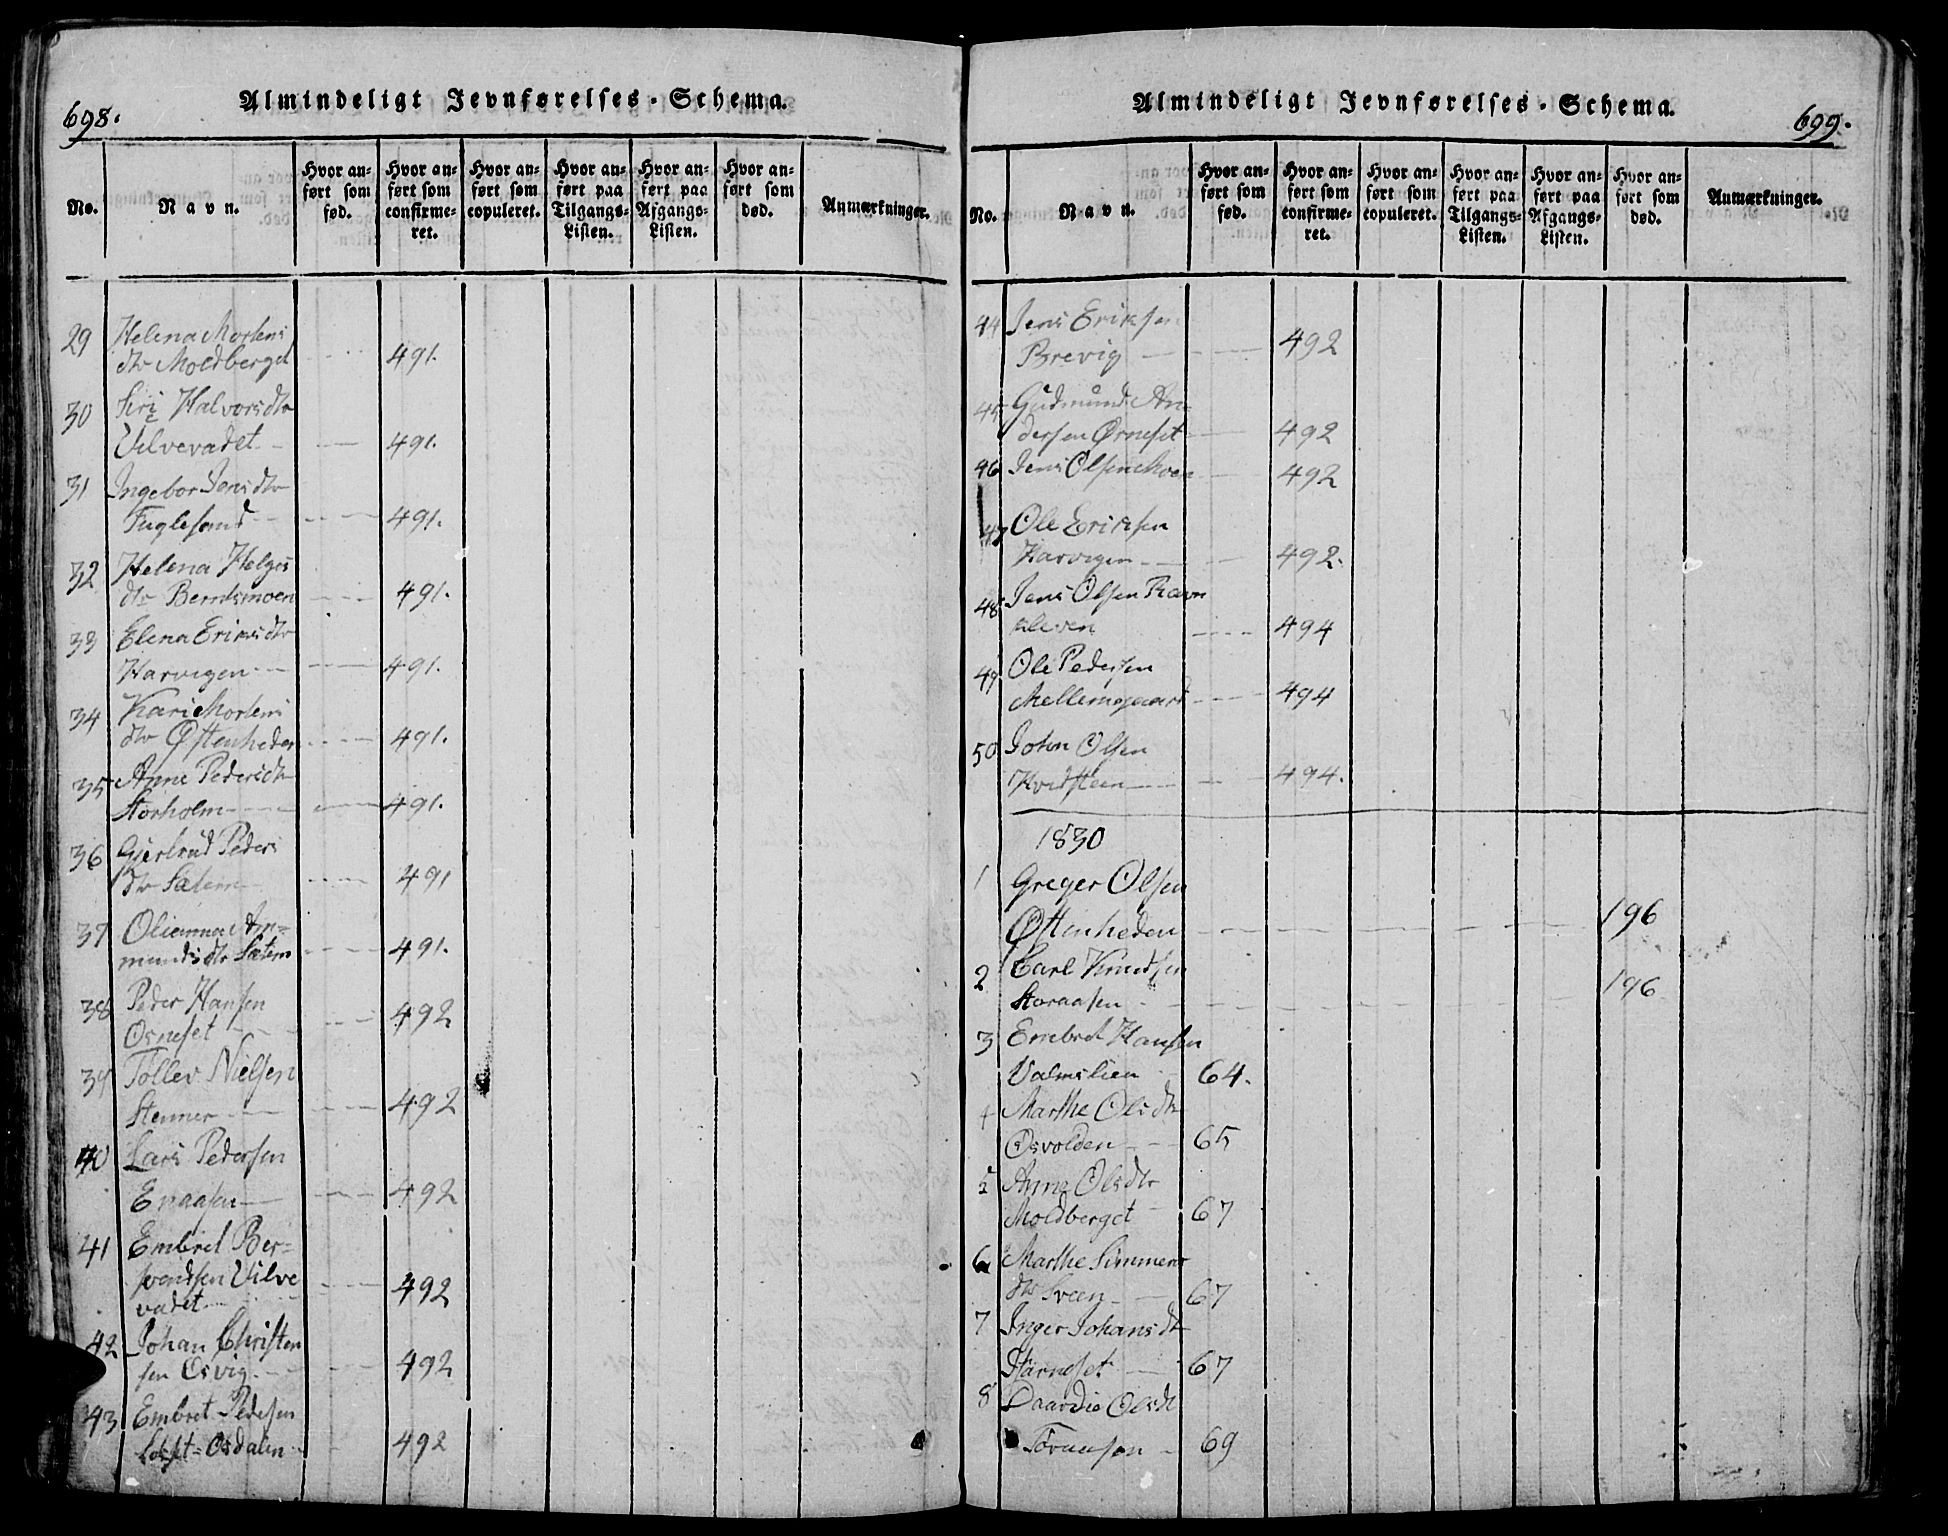 698.
Almindeligt Jevnførelses-Schema.
No.
Navn.
Hvor an-
ført som
fød.
Hvor an-
ført som
confirme-
ret.
Hvor an-
ført som
copuleret.
Hvor an-
ført paa
Tilgangs-
Listen.
Hvor an-
ført paa
Afgangs-
Listen.
Hvor an-
ført som
død.
Anmærkninger.
29 Helena Mortens
dtr Moldberget 491.
30 Siri Halvorsdtr
Ulvevadet 491.
31 Ingebor Jensdtr
Fuglesand 491.
32 Helena Helges
dtr Berntsmoen 491.
33 Elena Eriksdtr
Harvigen 491.
34 Kari Mortens
dtr Østenheden 491.
35 Anne Pedersdtr
Storholm 491.
36 Giertrud Peders
dtr Sætern 491
37 Olianna Am=
mundsdtr Sætern 491.
38 Peder Hansen
Osneset 492
39 Tollev Nielsen
Stenner 492
40 Lars Pedersen
Enaasen 492
41 Embret Ber=
svendsen Ulve
vadet 492
42 Johan Christen
sen Osvig 492
43 Embret Pedersen
Osdalen 492
699.
Almindeligt Jevnførelses-Schema.
No.
Navn.
Hvor an-
ført som
fød.
Hvor an-
ført som
confirme-
ret.
Hvor an-
ført som
copuleret.
Hvor an-
ført paa
Tilgangs-
Listen.
Hvor an-
ført paa
Afgangs-
Listen.
Hvor an-
ført som
død.
Anmærkninger.
44 Jens Eriksen
Brevig 492
45 Gudmund An-
dersen Ørneset 492
46 Jens Olsen Moen 492
47 Ole Eriksen
Harvigen 492.
48 Jens Olsen Ravn
kleven 494
49 Ole Pedersen
Mellemgaard 494
50 John Olsen
Kvidsteen 494.
1830
1 Greger Olsen
Østenheden 196
2 Carl Knudsen
Storaasen 196
3 Embret Hansen
Valmslien 64.
4 Marthe Olsdtr
Osvolden 65
5 Anne Olsdtr
Moldberget 67
6 Marthe Simmens
dtr Sveen 67
7 Inger Johansdtr
67
8 Olsdt
69